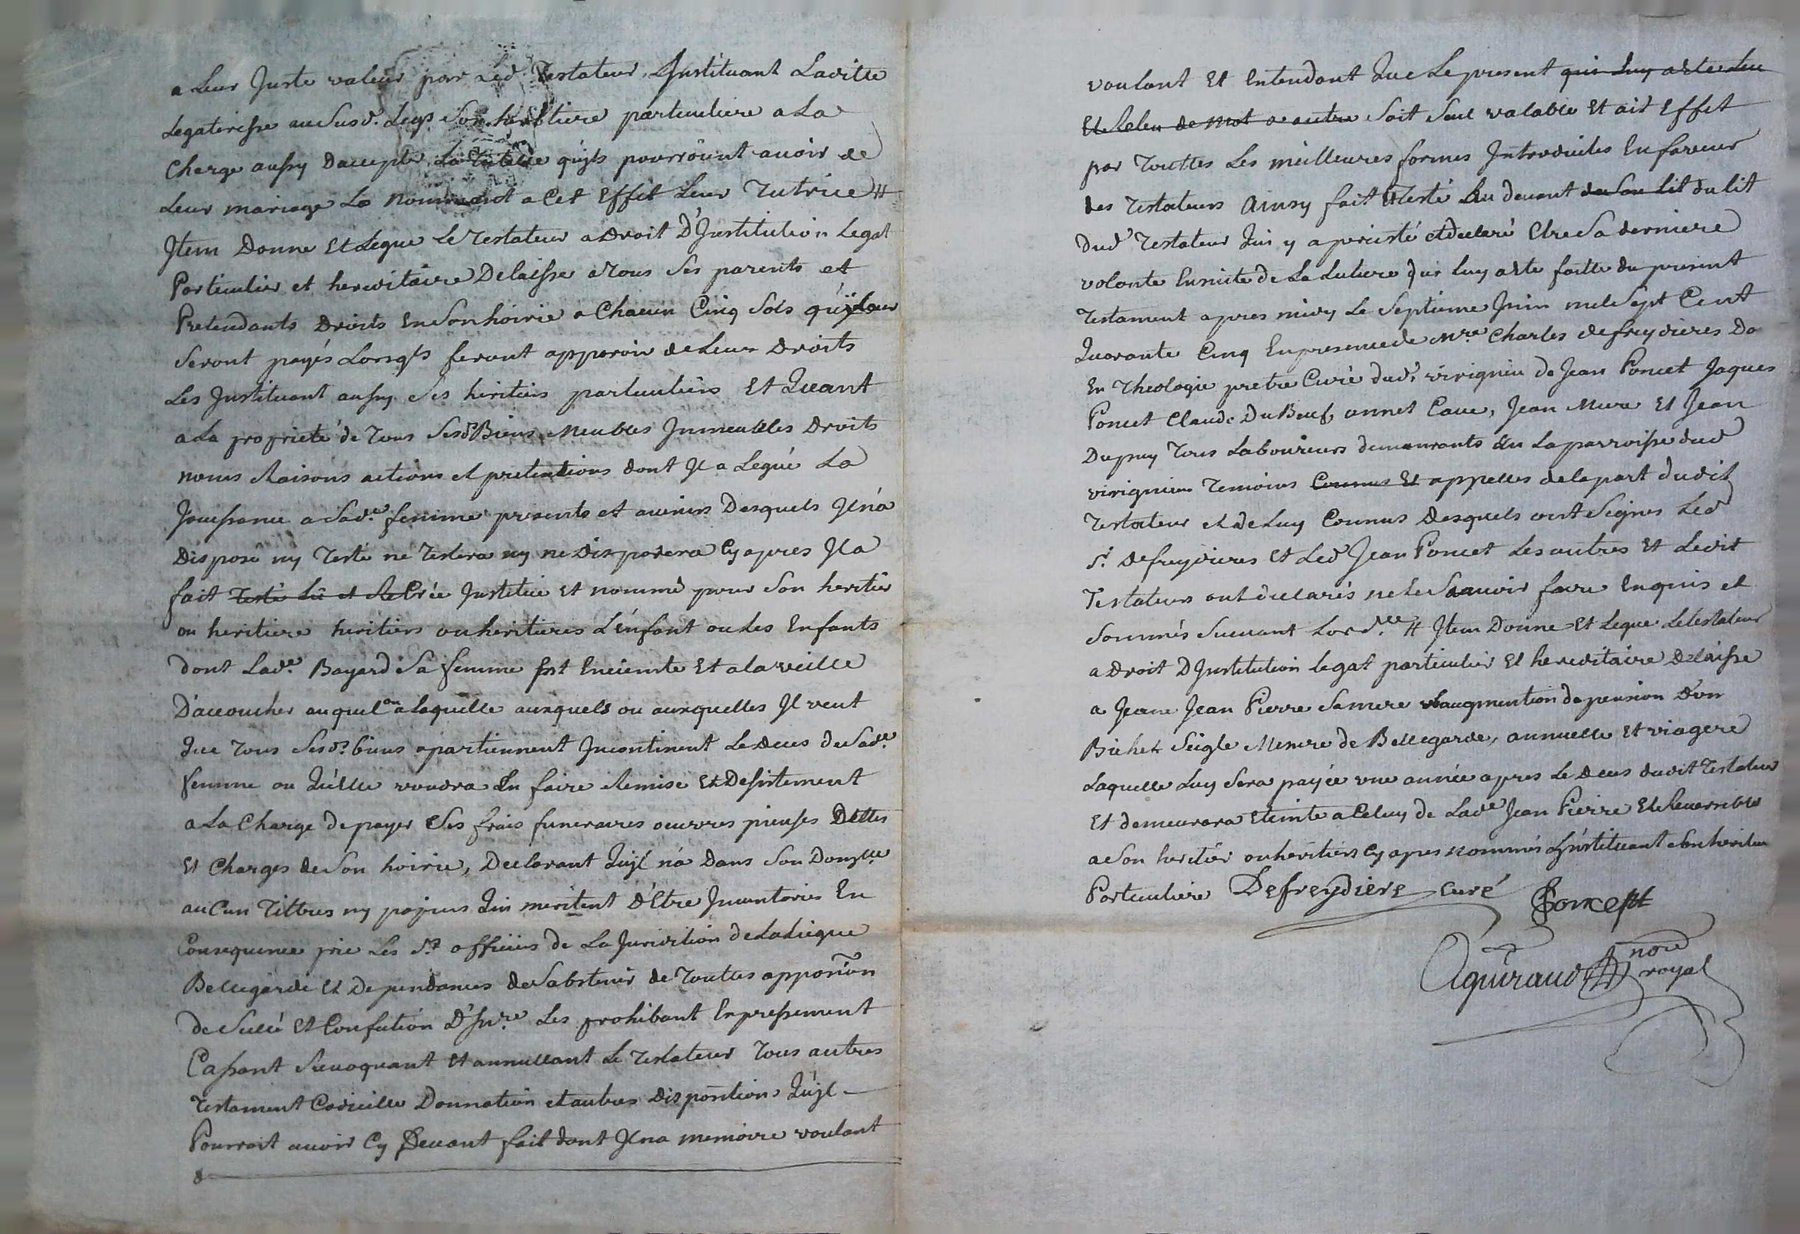 a Leur Juste valeur par Led. Testateur, L'Instituant Ladite
Legateresse au Susd. Legs Son heritiere particuliere a La
Charge aussy Daccepter La Tutelle qu'jls pourroient avoir de
Leur mariage La Nommant a Cet Effet Leur Tutrice #
Jtem Donne Et Legue Le Testateur a Droit D'Institution Legat
Particulier et hereditaire Delaisse a Tous Ses parents et
Pretendants Droits En Son hoirie a Chacun Cinq Sols qu'jl Leur
Seront payés Lorsqls feront apparoir de Leurs Droits
Les Jnstituant aussy Ses heritiers particuliers Et Quant
a La proprieté de Tous Sesd. Biens Meubles Jmmeubles Droits
noms Raisons actions et pretentions dont Jl a Legué La
Jouissance a Sade. femme presents et avenirs Desquels Jl n'a
Disposé ny Testé ne Testera ny ne Disposera Cy apres Jl a
fait Testé Lu et Re Créé Jnstitué Et nommé pour Son heritier
ou heritiere heritiers ou heritieres L'énfant ou Les Enfants
dont Lade. Bayard Sa femme est Enceinte Et a la veille
D'accoucher auquel ou a laquelle auxquels ou auxquelles Jl veut
Que Tous Sesd. biens apartiennent Jncontinent Le Deces de Sade.
femme ou Qu'élle voudra En faire Remise Et Desistement
a La Charge de payer Ses frais funeraires oeuvres pieuses Dettes
Et Charges de Son hoirie, Declarant Qujl n'a Dans Son Domlle
aucun Tiltres ny papiers Qui meritent D'Etre Jnventories En
Consequence prie Les Srs officiers de La Juridition de
Bellegarde Et Dependances de Sabstenir de Touttes apposion
de Scellé Et Confection D'Jnre. Les prohibant Expressement
Cassant Revoquant Et annullant Le Testateur Tous autres
Testament Codicille Donnation et autres Dispositions Qujl
Pourroit avoir Cy Devant fait dont Jl na memoire voulant
voulant Et Entendant Que Le present qui Luy a Ete Leu
Et Releu de mot a autre Soit Seul valable Et ait Effet
par Touttes Les meilleures formes Jntroduites En faveur
des Testateurs Ainsy fait Et Testé Au devant de Son Lit du lit
Dud. Testateur Qui y a persisté et declaré Etre Sa derniere
volonté Ensuite de La Lecture Qui Luy a Ete faitte du present
Testament apres midy Le Septieme Juin mil Sept Cent
Quarante Cinq En presence de Mre. Charles defreydieres Dr
En Theologie pretre Curé dud. virignieu de Jean Poncet Jaques
Poncet Claude Du Beuf, annet Cave, Jean Mure Et Jean
Dupuy Tous Laboureurs demeurants En La parroisse dud
virignieu Temoins Connus Et appelles de la part dudit
Testateur et de Luy Connus Desquels ont Signes Led
Sr. defreydieres Et Led Jean Poncet Les autres Et Ledit
Testateur ont declarés ne Le Scavoir faire Enquis et
Sommés Suivant Lordce # Jtem Donne Et Legue Le testateur
a Droit D'Jnstitution legat particulier Et hereditaire Delaisse
a Jeane Jean Pierre Sa mere augmention de pension D'un
Bichet Seigle Mesure de Bellegarde, annuelle Et viagere
Laquelle Luy Sera payée une année apres Le Deces dudit Testateur
Et demeurera Eteinte a Celuy de Lade Jean Pierre Et Reversible
a Son heritier ou heritiers Cy apres nommés L'jnstituant Son heritiere
Particuliere Defreydiere curé Poncept
Aguiraud nore
royal